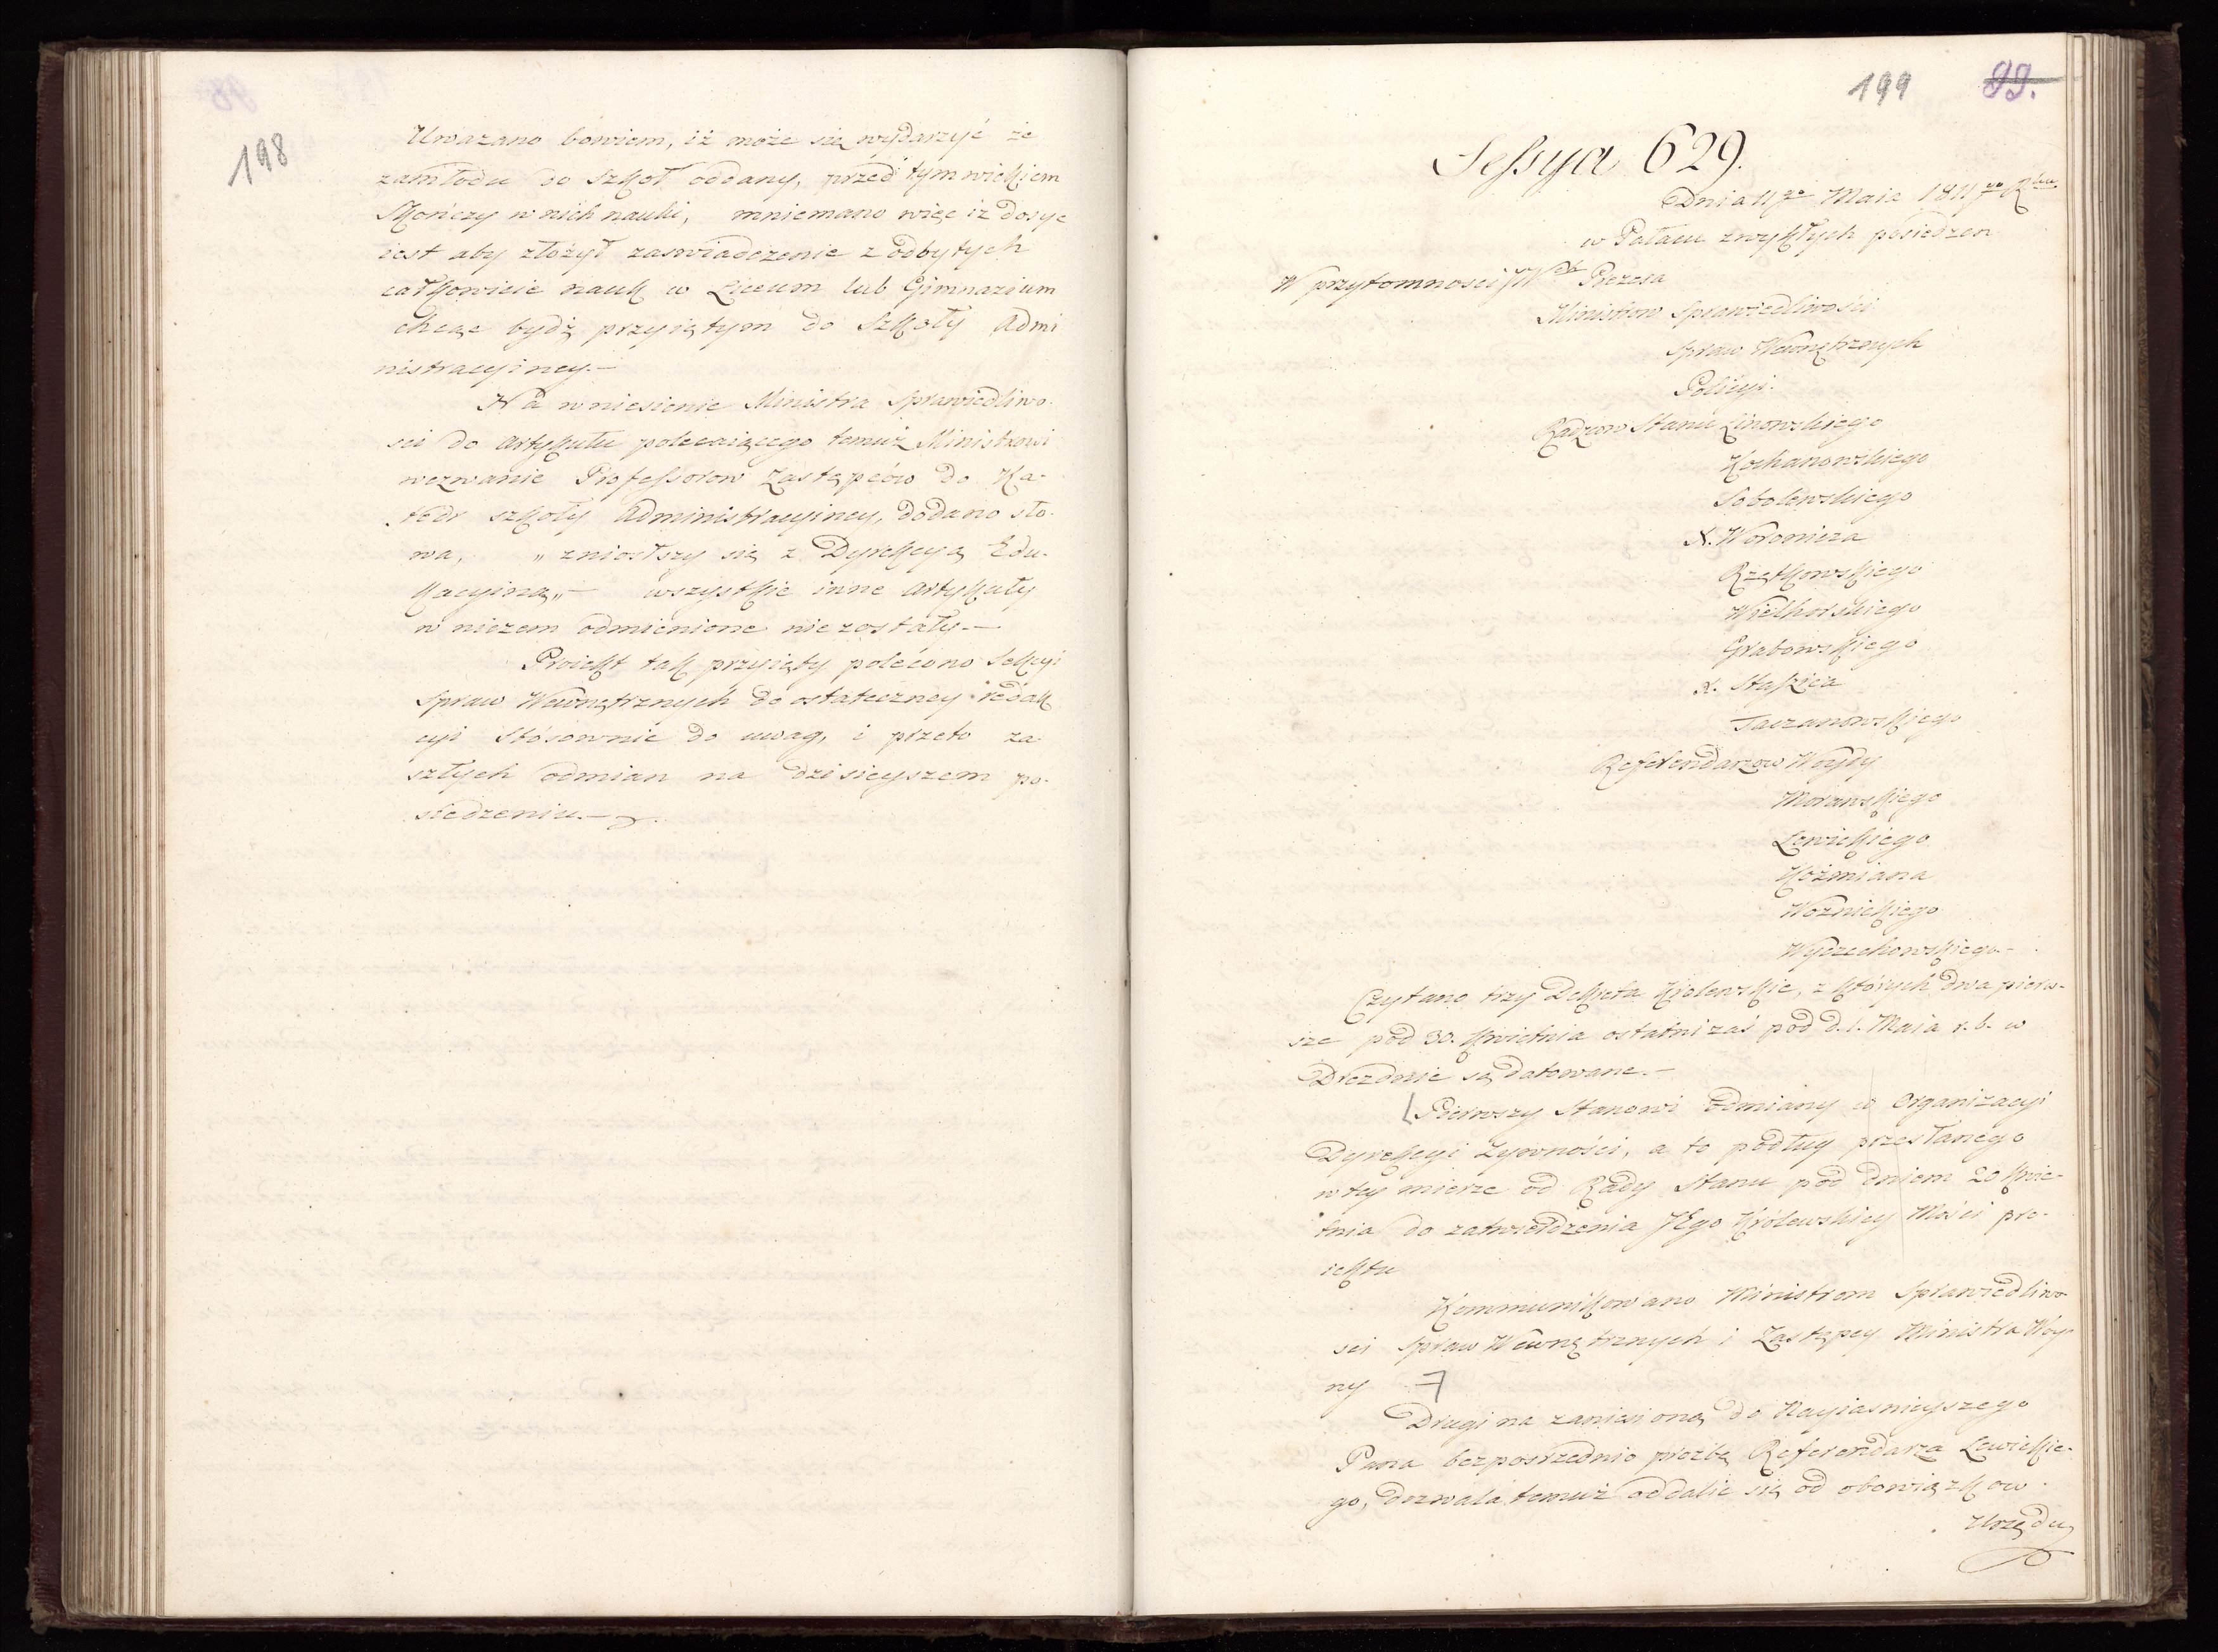 198
Uwazano bowiem, iż może się wydarzyć że
zamłodu do szkoł oddany, przed tym wiekiem
skończy w nich nauki, mniemano więc iż dosyc
iest aby złożył zaswiadczenie z odbytych
całkowicie nauk w Liceum lub Gimnazium
chcąc bydź przyiętym do Szkoły Admi
nistracyiney.—
Na wniesienie Ministra Sprawiedliwo-
sci do artykułu polecaiącego temuż Ministrowi
wezwanie Professorow Zastępców do Ka-
tedr szkoły Administracyiney, dodano sło-
wa, „zniosłszy się z Dyrekcyą Edu-
kacyiną„— wszystkie inne artykuły
w niczem odmienione nie zostały.—
Proiekt tak przyięty polécono Sekcyi
Spraw Wewnętrznych do ostateczney redak
cyi stósownie do uwag, i przeto za-
szłych odmian na dzisieyszem po-
siedzeniu.—
199 99.
Sessya 629.
Dnia 11go Maia 1811go Rku
w Pałacu zwykłych posiedzen
W przytomnosci JW Prezesa
Ministrow Sprawiedliwości
Spraw Wewnętrznych
Policyi.
Radzcow Stanu Linowskiego
Kochanowskiego
Sobolewskiego
X. Woronicza
Rzętkowskiego
Wielhorskiego
Grabowskiego
X. Staszica
Taczanowskiego
Referendarzow Woydy
Morawskiego
Lewickiego
Koźmiana
Woźnickiego
Wyczechowskiego—
Czytano trzy Dekreta Królewskie, z których dwa pierw-
sze pod 30. Kwietnia ostatni zaś pod d. 1. Maia r. b. w
Dreznie są datowane.—
Pierwszy stanowi odmiany w Organizacyi
Dyrekcyi Zywności, a to podług przesłanego
w tey mierze od Rady Stanu pod dniem 20 Kwie-
tnia do zatwierdzenia JEgo Królewskiey Mości pro-
iektu
Kommunikowano Ministrom Sprawiedliwo
sci Spraw Wewnętrznych i Zastępcy Ministra Woy-
ny
Drugi na zaniesioną do Nayiasnieyszego
Pana bezposrzednio prozbę Referendarza Lewickie-
go, dozwala temuż oddalić się od obowiązkow
Urzędu